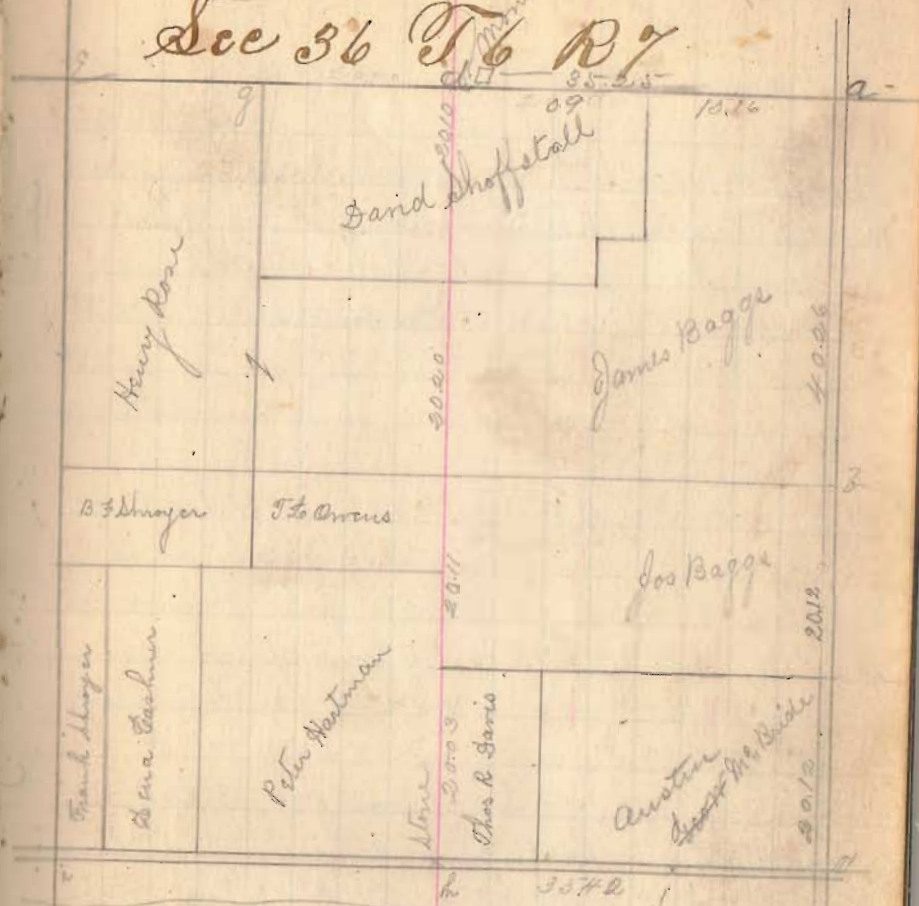 Sec 36 T6 R7
Mon
35.25
a
g
09
10.16
20.10
David Shoffstall
Henry Rose
James Baggs
40.26
20.20
B F Shroyer
T E Owens
3
20.11
Jos Baggs
20.12
Frank Shroyer
Peter Hartman
Stone
20.03
Thos R Davis
Austin
McBride
20.12
h
35.42